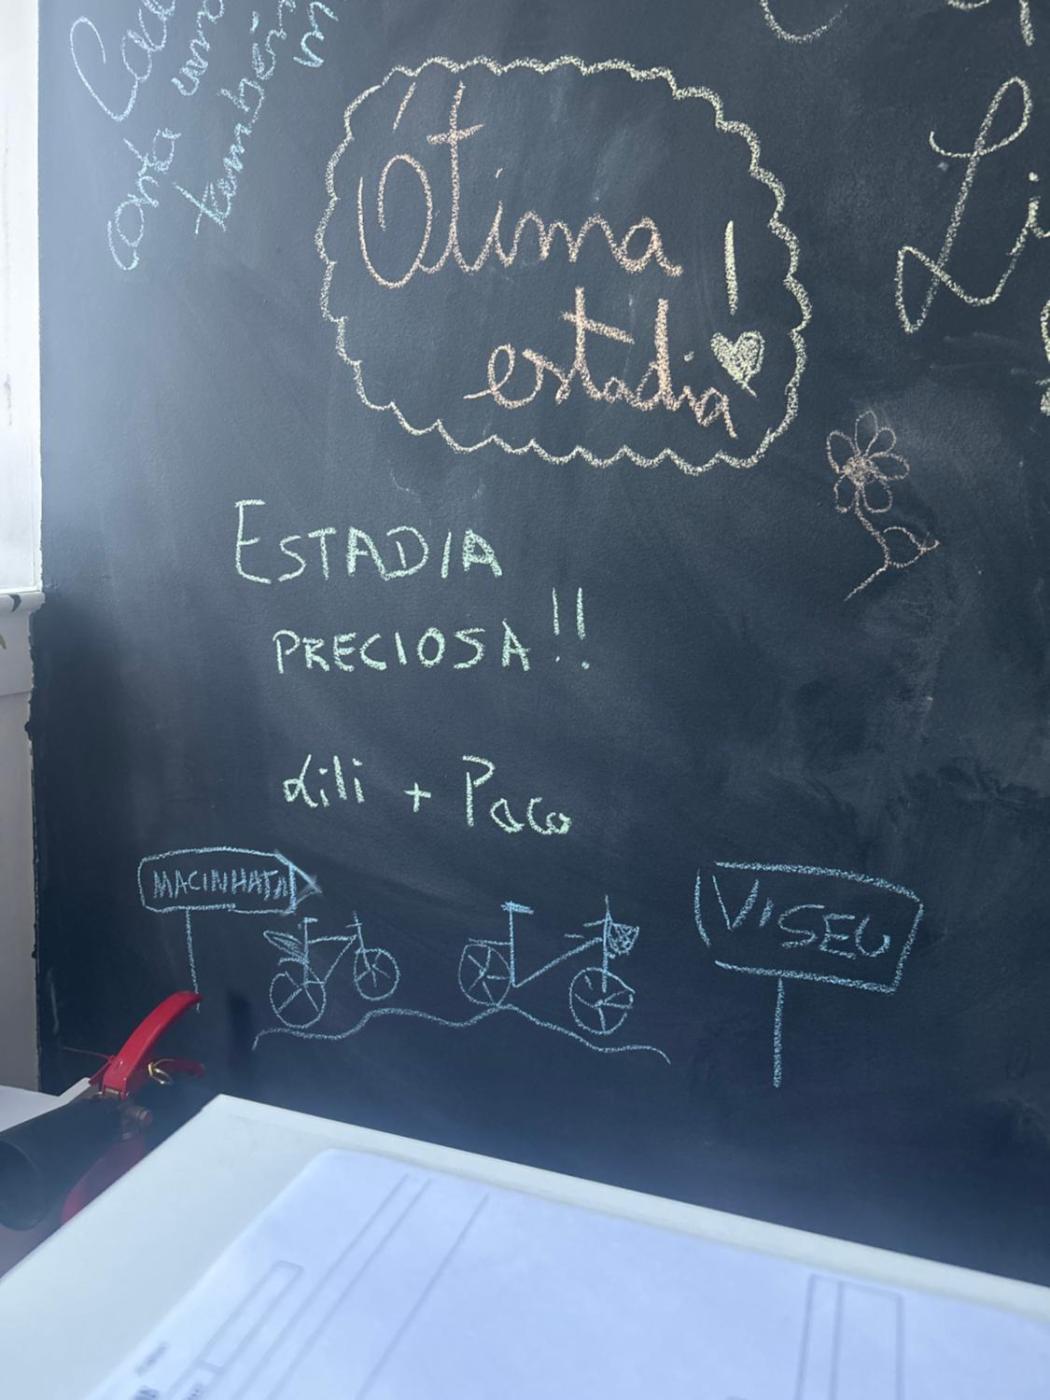 uma
conta
também
Ótima
estadia!
Li
ESTADIA
PRECIOSA!!
Lili + Paco
MACINHATA
VISEU